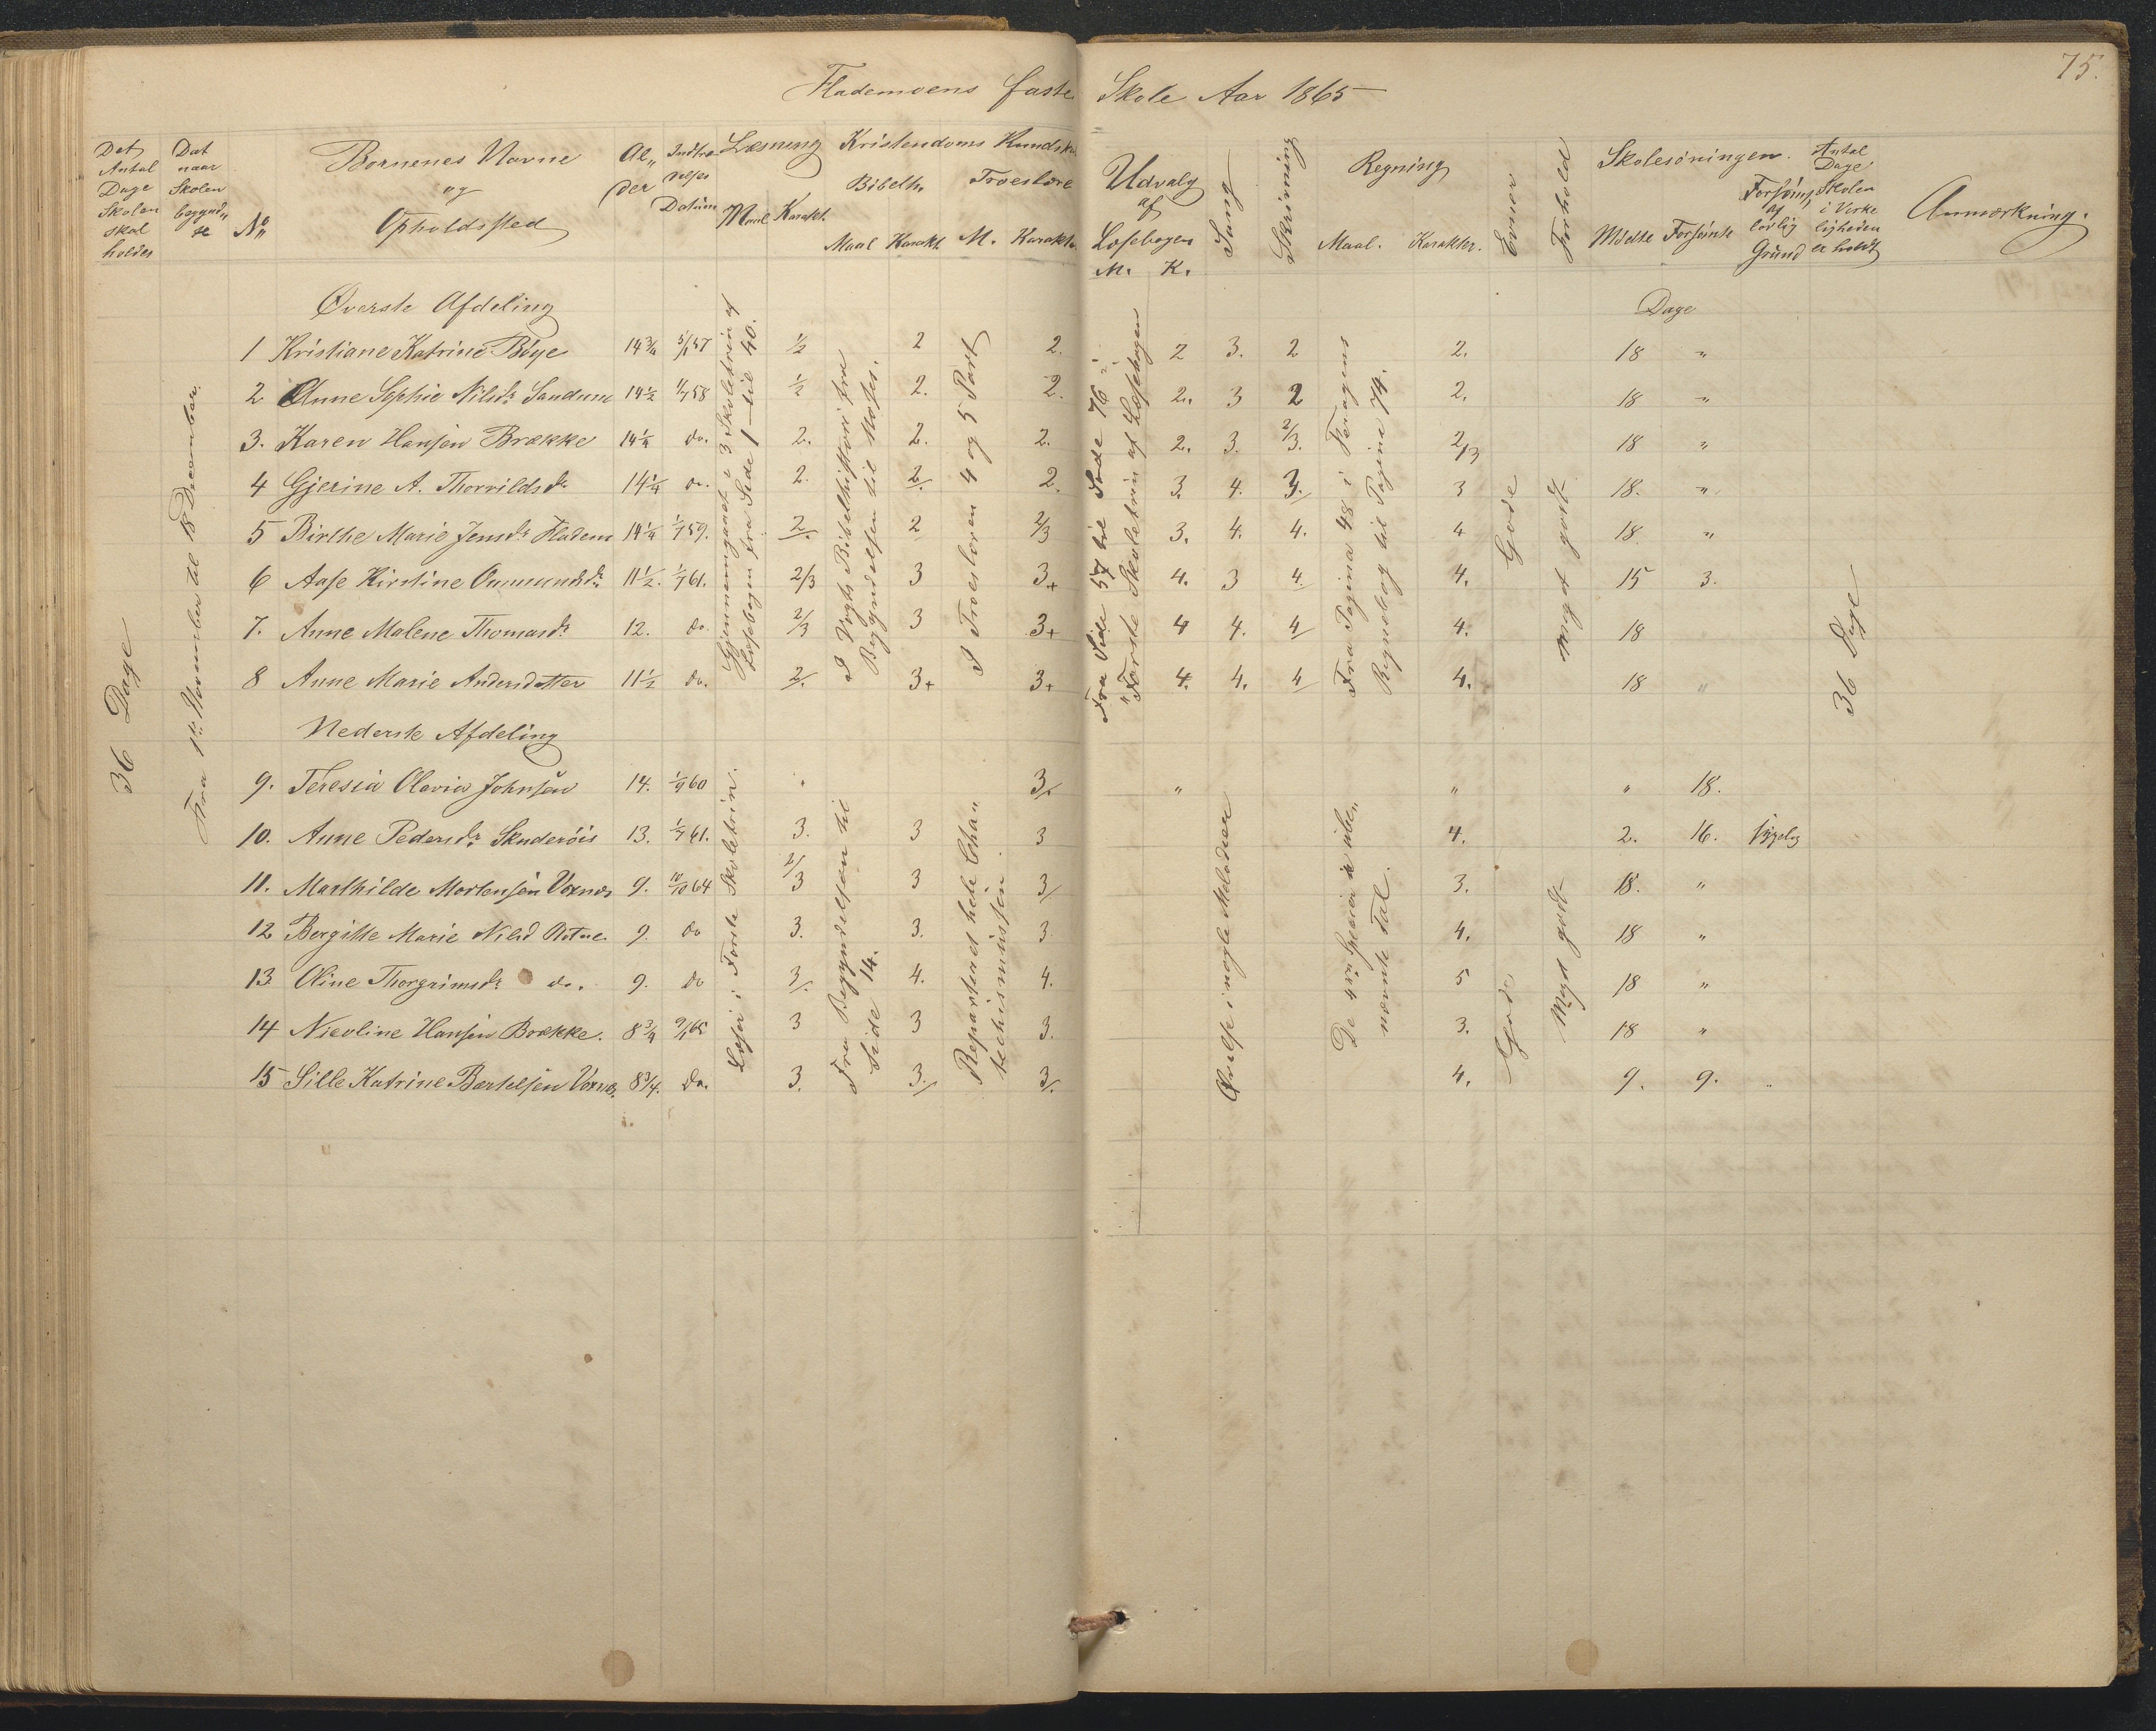 75.
Flademoens faste Skole Aar 1865
Det Antal Dage Skolen skal holdes
Dat naar Skolen begynd„ te
No
Børnenes Navne og Opholdssted
Al„ der
Indtræ- delses Datum
Læsning
Maal Karakt.
Kristendoms Kundsk
Bibelh. Troeslære
Maal Karakt. M. Karakt.
Udvalg af Læsebogen
M. K.
Sang
Skrivning
Regning
Maal. Karakter.
Evner
Forhold
Skolesøningen.
Mødte Forsømte Forsømt af lovlig Grund
Antal Dage Skolen i Virke ligheden er holdt
Anmærkning.
36 Dage
Fra 1te November til 18 December.
Øverste Afdeling
Dage
1 Kristiane Katrine Bøye 14 3/4 5/1 57 1/2 2 2. 2 3. 2 2. 18 "
2 Anne Sophie Nilsdr Sandum 14 1/2 1/7 58 1/2 2. 2. 2. 3 2 2. 18 "
3. Karen Hansen Brække 14 1/4 do. 2. 2. 2. 2. 3. 2/3. 2/3 18 "
4 Gjerine A. Thorvildsdr 14 1/4 do. 2. 2/. 2. 3. 4. 3. 3 18. "
5 Birthe Marie Jensdr Fladem 14 1/4 1/7 59. 2/. 2 2/3 3. 4. 4. 4 18 "
6 Aase Kirstine Ommundsdr 11 1/2. 1/7 61. 2/3 3 3+ 4. 3 4 4. 15 3.
7. Anne Malene Thomasdr 12. do. 2/3 3 3+ 4 4. 4/ 4. 18
8 Anne Marie Andersdatter 11 1/2 do. 2/. 3+ 3+ 4. 4. 4/ 4. 18 "
Gjennemgaaet i 3 Skoletrin af Læsebogen fra Side 1 til 40.
I Vogts Bibelhistorie fra Begyndelsen til Moses.
I Troeslæren 4 og 5 Part
Fra Side 57 til Side 76 i "Første Skoletrin af Læsebogen
Fra Pagina 48 i Regnebog til Pagina 74.
Gode
Meget godt
36 Dage
Nederste Afdeling
9. Teresia Olavia Johnsen 14. 1/9 60 3/. " " " 18.
10. Anne Pedersdr Skuderöis 13. 1/7 61. 3. 3 3 4. 2. 16. sygelig
11. Marthilde Mortensen Voxnes 9. 10/10 64 2/3 3 3/ 3. 18. "
12 Bergitte Marie Nilsd 9. do 3. 3. 3. 4. 18 "
13 Oline Thorgrimsdr do. 9. do 3/. 4. 4. 5 18 "
14 Nicoline Hansen Brække. 8 3/4 9/1 65 3 3 3. 3. 18 "
15 Sille Katrine Bertelsen Voxnes. 8 3/4. do. 3. 3./ 3/. 4. 9. 9. "
Læser i Første Skoletrin.
Fra Begyndelsen til Side 14.
Reparteret hele Cha„ techismussen.
Øvelse i nogle Melodier
De 4re Specier i ube„ nævnte Tal.
Gode
Meget godt